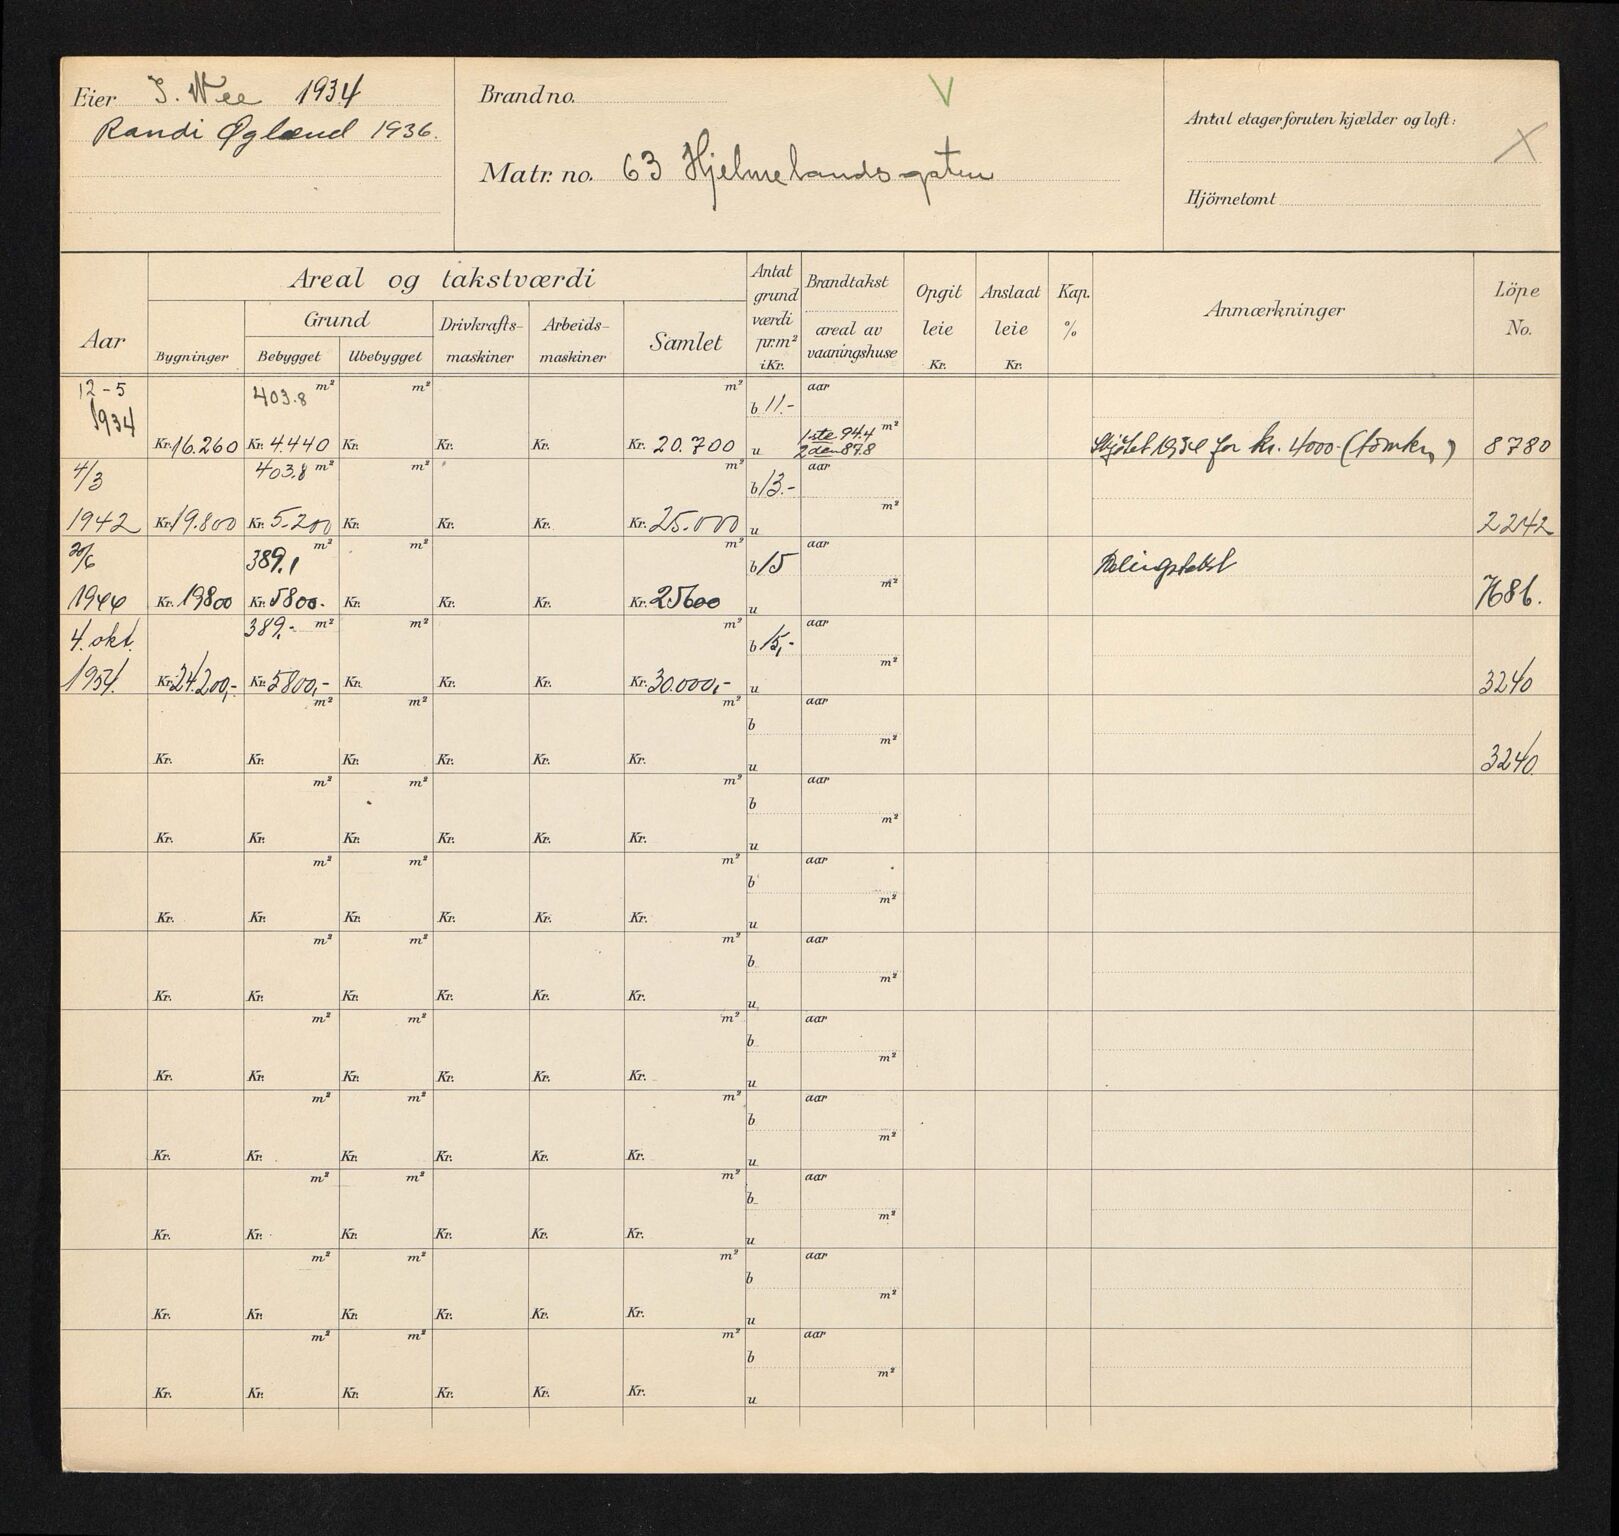 Eier J. Wee 1934
Randi Øglænd 1936.
Brandno.
V
Matr. no. 63 Hjelmelandsgaten
Antal etager foruten kjælder og loft:
X
Hjörnetomt
Aar
Areal og takstværdi
Bygninger
Grund
Bebygget
Ubebygget
Drivkrafts-
maskiner
Arbeids-
maskiner
Samlet
Antat
grund
værdi
pr. m²
i Kr.
Brandtakst
areal av
vaaningshuse
Opgit
leie
Kr.
Anslaat
leie
Kr.
Kap.
%
Anmærkninger
Löpe
No.
12-5 403.8 m² m² m² b 11.- aar
1934 Kr. 16.260 Kr. 4.440 Kr. Kr. Kr. Kr. 20.700 u 1ste 94.4 m² Skjøtet 1934 for kr. 4000.- 8780
2den 87.8
4/3 403.8 m² m² m² b 13.- aar
1942 Kr. 19.800 Kr. 5.200 Kr. Kr. Kr. Kr. 25.000 u m² 2242
20/6 389,1 m² m² m² b 15 aar
1944 Kr. 19800 Kr. 5800.- Kr. Kr. Kr. Kr. 25600 u m² 7686.
4. okt. 389,- m² m² m² b 15,- aar
1954. Kr. 24.200,- Kr. 5800,- Kr. Kr. Kr. Kr. 30.000,- u m² 3240
m² m² m² b aar
Kr. Kr. Kr. Kr. Kr. Kr. u m² 3240.
m² m² m² b aar
Kr. Kr. Kr. Kr. Kr. Kr. u m²
m² m² m² b aar
Kr. Kr. Kr. Kr. Kr. Kr. u m²
m² m² m² b aar
Kr. Kr. Kr. Kr. Kr. Kr. u m²
m² m² m² b aar
Kr. Kr. Kr. Kr. Kr. Kr. u m²
m² m² m² b aar
Kr. Kr. Kr. Kr. Kr. Kr. u m²
m² m² m² b aar
Kr. Kr. Kr. Kr. Kr. Kr. u m²
m² m² m² b aar
Kr. Kr. Kr. Kr. Kr. Kr. u m²
m² m² m² b aar
Kr. Kr. Kr. Kr. Kr. Kr. u m²